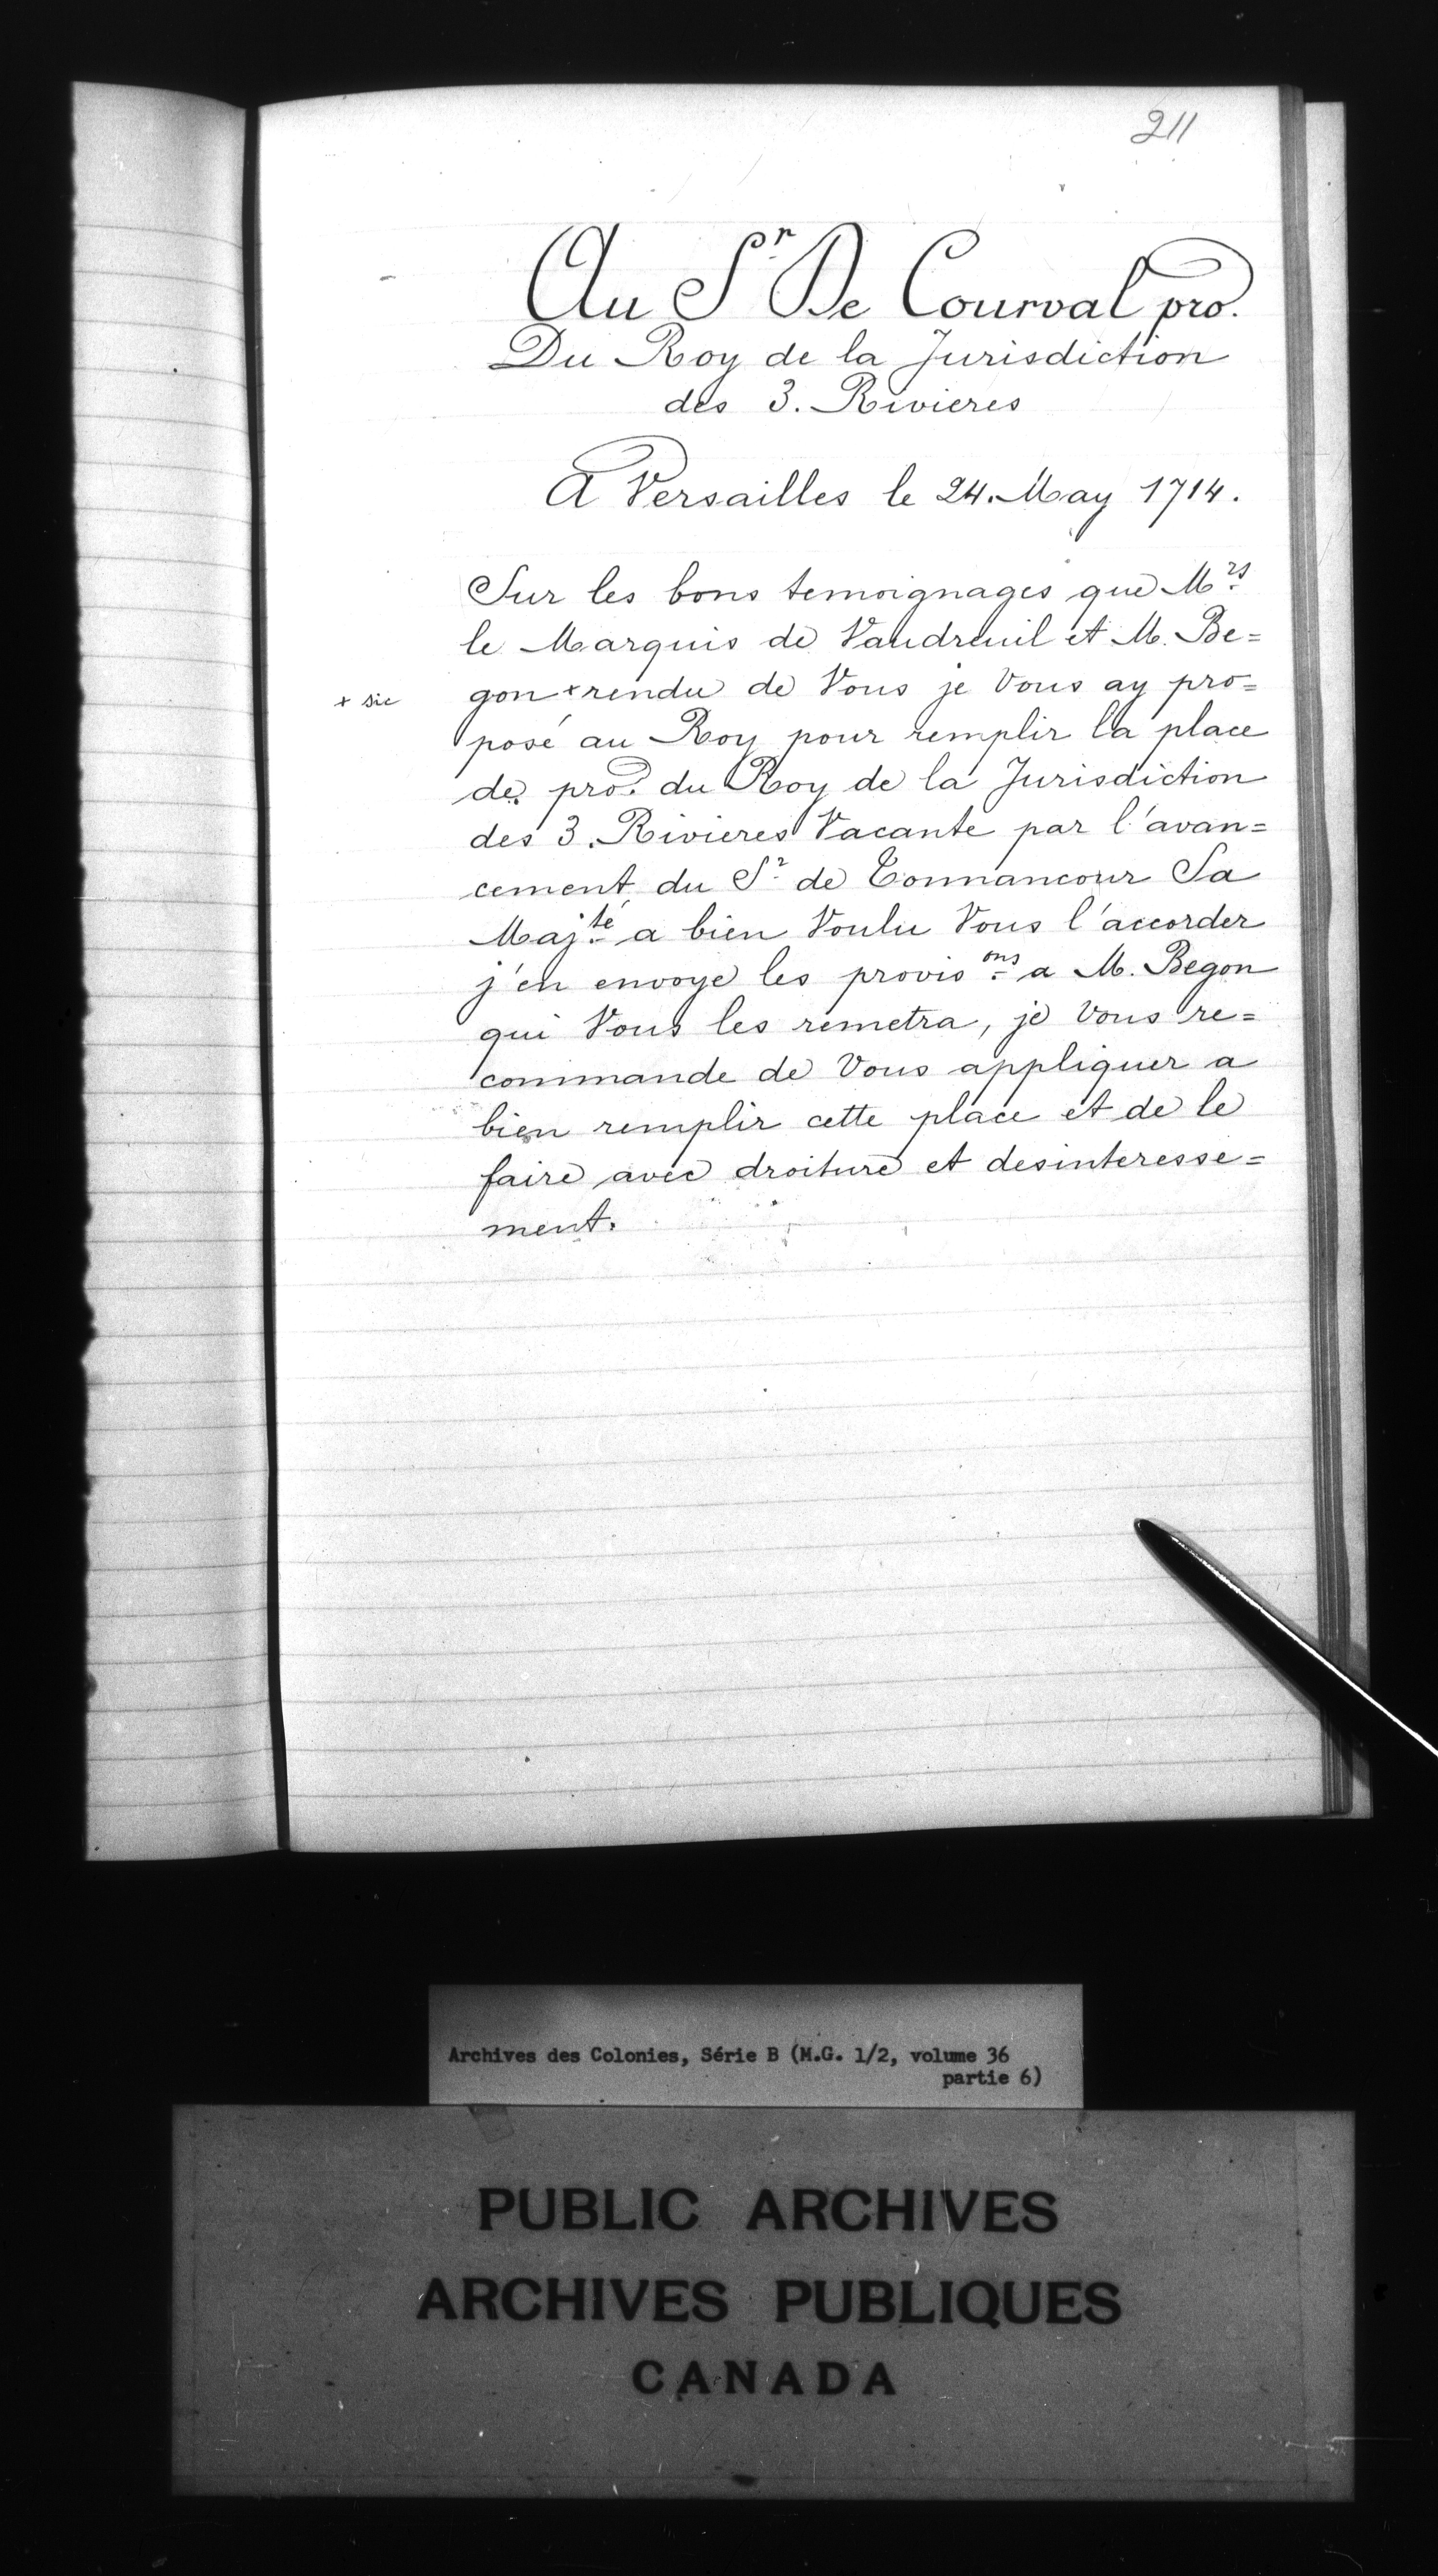 211
Au Sr De Courval pro.
Du Roy de la Jurisdiction
des 3. Rivieres
A Versailles le 24. May 1714.
Sur les bons temoignages que Mrs
le Marquis de Vaudreuil et M. Be=
+ sic
gon + rendu de Vous je Vous ay pro=
posé au Roy pour remplir la place
de pro. du Roy de la Jurisdiction
des 3. Rivieres Vacante par l'avan=
cement du Sr de Tonnancour Sa
Majté a bien Voulu Vous l'accorder
j'en envoye les provisons a M. Begon
qui Vous les remetra, je Vous re=
commande de Vous appliquer a
bien remplir cette place et de le
faire avec droiture et desinteresse=
ment.
Archives des Colonies, Série B (M.G. 1/2, volume 36
partie 6)
PUBLIC ARCHIVES
ARCHIVES PUBLIQUES
CANADA